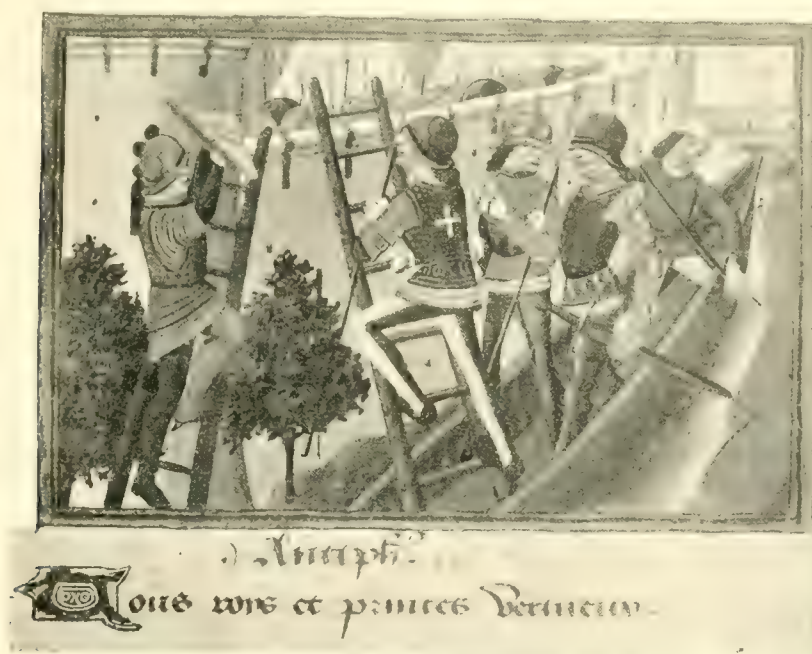 Antiph
ous rois et princes vertueux.